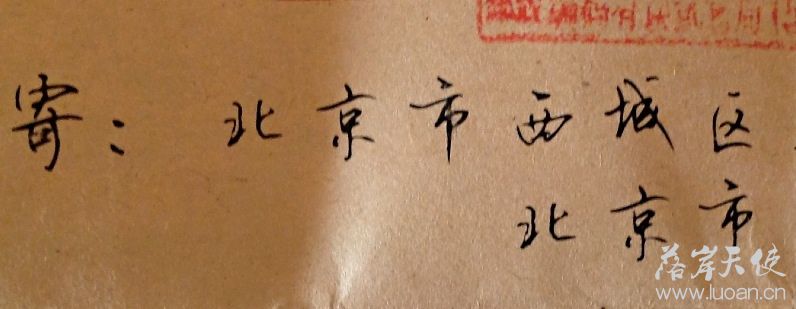 寄：北京市西城区
北京市
落岸天使
www.luoan.cn